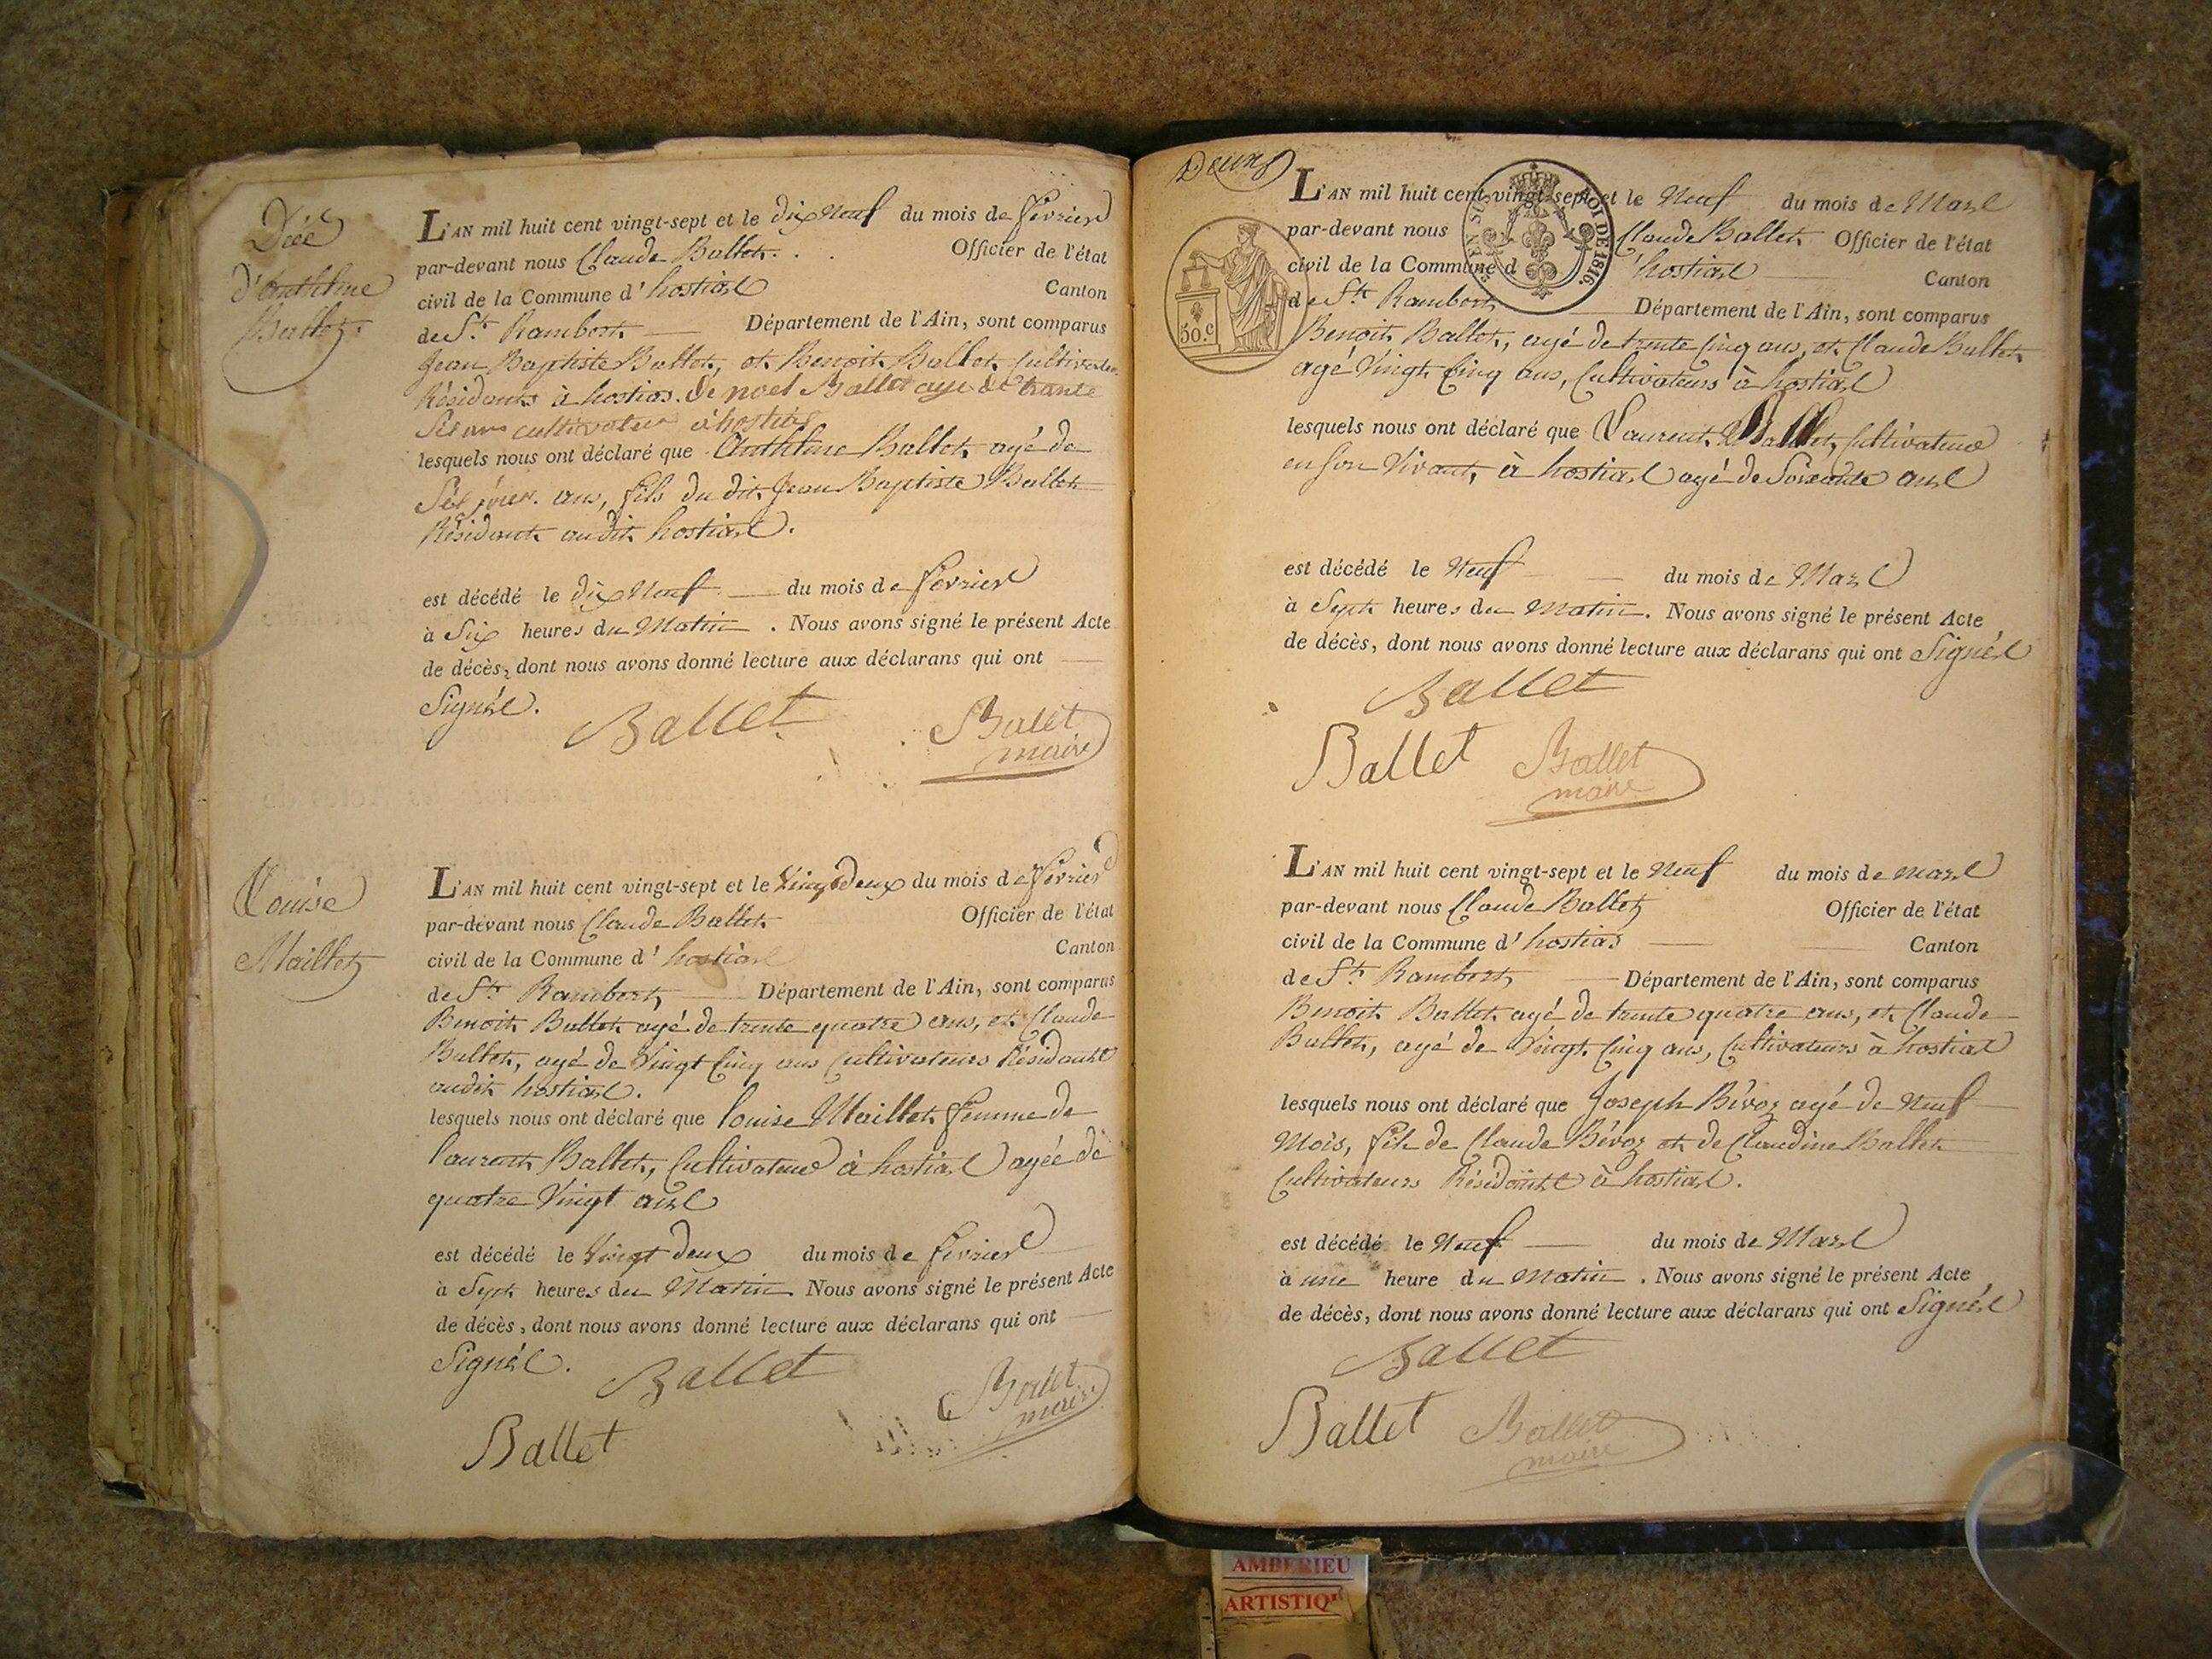 Décé
d'Anthlme
Ballet.
L'AN mil huit cent vingt-sept et le dix Neuf du mois de février
par-devant nous Claude Ballet. . . Officier de l'état
civil de la Commune d'hostias Canton
de St. Rambert Département de l'Ain, sont comparus
Jean Baptiste Ballet, et Benoit Ballet, Cultivateurs
Résidants à hostias. de noel Ballet age de trante
cultivateur à hostias
lesquels nous ont déclaré que Anthlme Ballet agé de
ans, fils du dit Jean Baptiste Ballet
Résidant audit hostias.
est décédé le dix Neuf du mois de février
à Six heures du Matin . Nous avons signé le présent Acte
de décès, dont nous avons donné lecture aux déclarans qui ont
Signés.
Ballet
Balet
maire
Louise
Maillet
L'AN mil huit cent vingt-sept et le Vingt deux du mois de février
par-devant nous Claude Ballet Officier de l'état
civil de la Commune d'hostias Canton
de St. Rambert, Département de l'Ain, sont comparus
Benoit Ballet agé de trente quatre ans, et Claude
Ballet, agé de Vingt Cinq ans Cultivateurs Résidants
audit hostias.
lesquels nous ont déclaré que Louise Maillet femme de
Laurent Ballet, Cultivateur à hostias agée de
quatre Vingt ans
est décédé le Vingt deux du mois de février
à Sept heures du Matin. Nous avons signé le présent Acte
de décès, dont nous avons donné lecture aux déclarans qui ont
Signés.
Ballet
Balet
maire
Ballet
Deux
L'AN mil huit cent vingt-sept et le Neuf du mois de Mars
par-devant nous Claude Ballet Officier de l'état
civil de la Commune d'hostias Canton
de St. Rambert Département de l'Ain, sont comparus
ROI DE 1816.
50.c
Benoit Ballet, agé de trente Cinq ans, et Claude Ballet
agé Vingt Cinq ans, Cultivateurs à hostias
lesquels nous ont déclaré que Laurent Ballet, Cultivateur
en son Vivant, à hostias agé de Soixante ans
est décédé le Neuf du mois de Mars
à Sept heures du Matin. Nous avons signé le présent Acte
de décès, dont nous avons donné lecture aux déclarans qui ont Signés
Ballet
Ballet Ballet
maire
L'AN mil huit cent vingt-sept et le Neuf du mois de mars
par-devant nous Claude Ballet Officier de l'état
civil de la Commune d'hostias Canton
de St. Rambert, Département de l'Ain, sont comparus
Benoit Ballet agé de trente quatre ans, et Claude
Ballet, agé de Vingt Cinq ans, Cultivateurs à hostias
lesquels nous ont déclaré que Joseph Bévoz agé de Neuf
Mois, fils de Claude Bévoz et de Claudine Ballet
Cultivateurs Résidants à hostias.
est décédé le Neuf du mois de Mars
à une heure du matin . Nous avons signé le présent Acte
de décès, dont nous avons donné lecture aux déclarans qui ont Signés
Ballet
Ballet Ballet
maire
AMBERIEU
ARTISTIQ